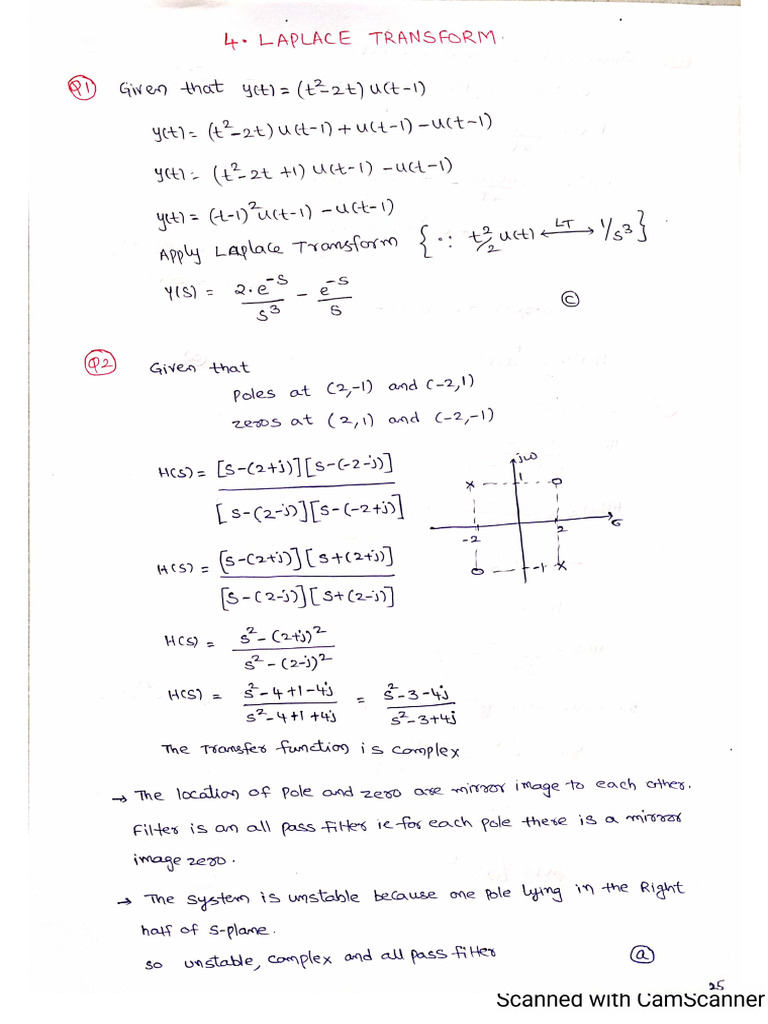 4. LAPLACE TRANSFORM.
Q1 Given that y(t) = (t²-2t) u(t-1)
y(t) = (t²-2t) u(t-1) + u(t-1) - u(t-1)
y(t) = (t²-2t+1) u(t-1) - u(t-1)
y(t) = (t-1)² u(t-1) - u(t-1)
Apply Laplace Transform { ∵ t²/2 u(t) ⟷ LT 1/s³ }
Y(s) = 2·e^-s / s³ - e^-s / s
(c)
Q2 Given that
Poles at (2,-1) and (-2,1)
zeros at (2,1) and (-2,-1)
H(s) = [s-(2+j)][s-(-2-j)] / [s-(2-j)][s-(-2+j)]
jω
x 1
-2 2 σ
-1 x
H(s) = [s-(2+j)][s+(2+j)] / [s-(2-j)][s+(2-j)]
H(s) = s²-(2+j)² / s²-(2-j)²
H(s) = s²-4+1-4j / s²-4+1+4j = s²-3-4j / s²-3+4j
The Transfer function is complex
→ The location of pole and zero are mirror image to each other.
Filter is an all pass filter ie for each pole there is a mirror
image zero.
→ The system is unstable because one pole lying in the Right
half of s-plane.
so unstable, complex and all pass filter (a)
25
Scanned with CamScanner